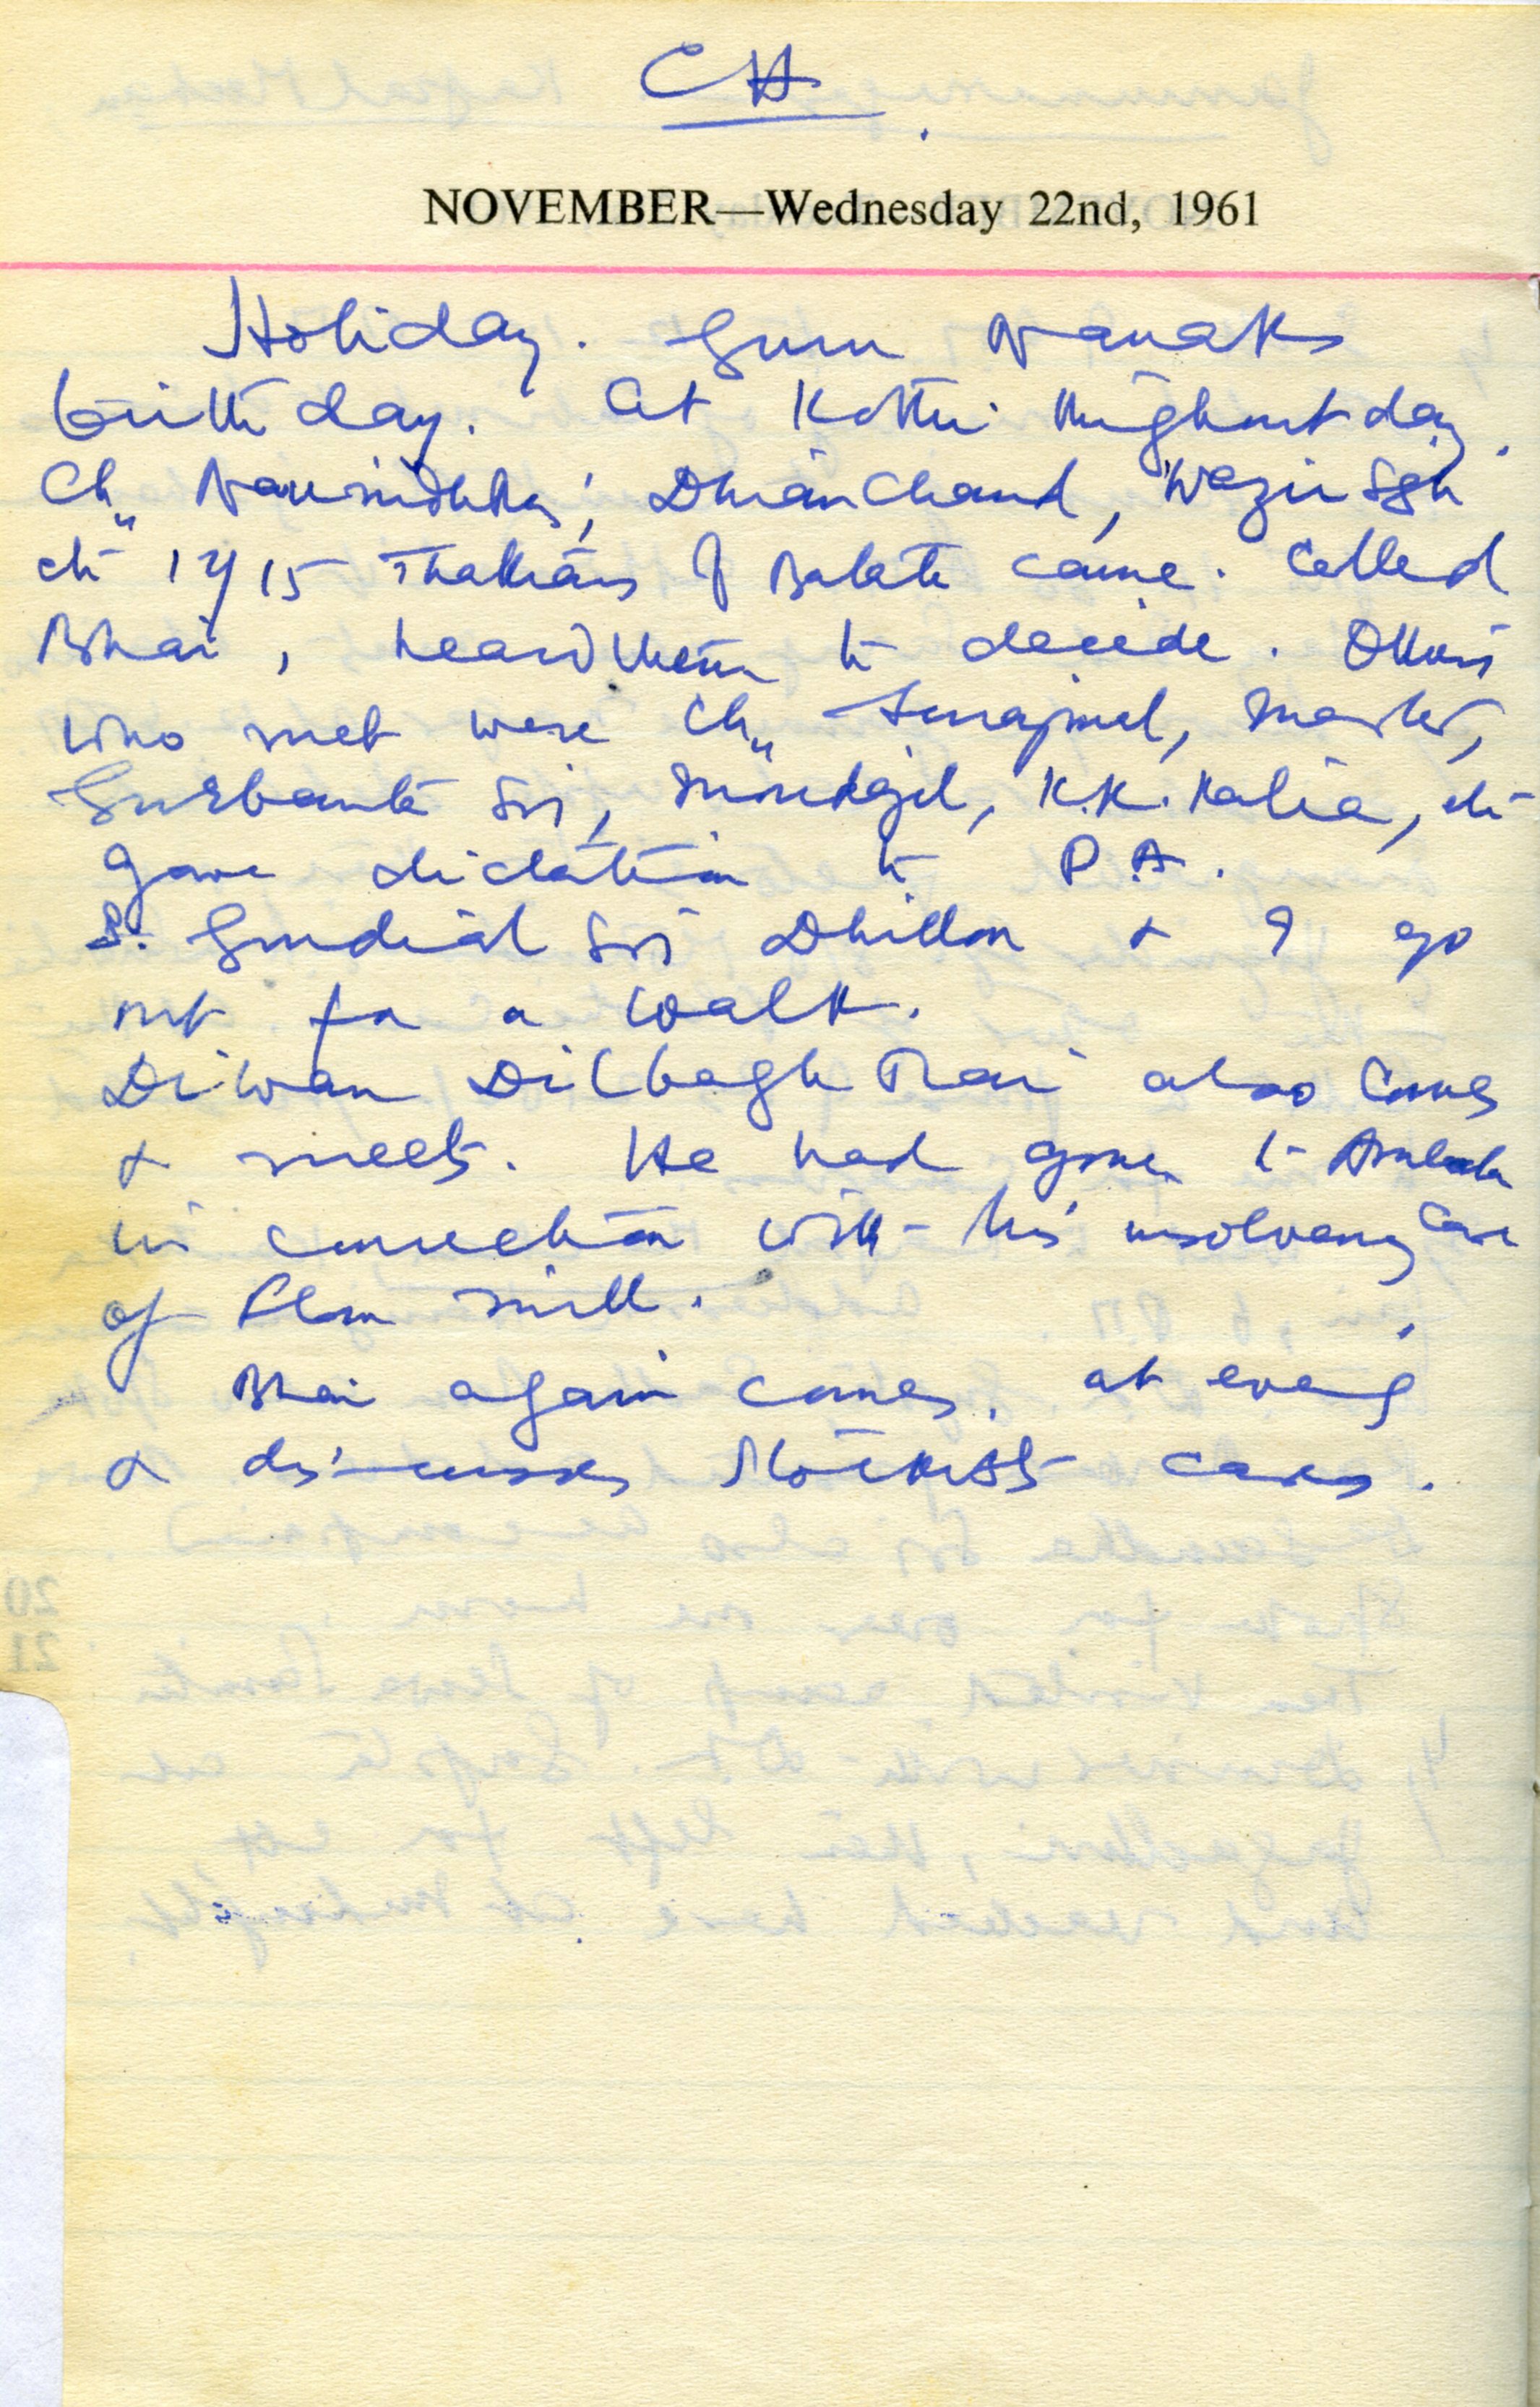 CH
NOVEMBER—Wednesday 22nd, 1961
Holiday. Guru Nanaks
birthday. At Kothi thrughout day.
Ch. , Dhian Chand, Wazir Sgh
etc 14/15 of came. Called
Bhai, heard them to decide. Others
who met were Ch. Surajmal, Master,
Gurbanta Sgh, Moudgil, K.K. Kalia, etc
gave dictation to P.A.
S. Gurdial Sgh Dhillon & I go
out for a walk.
Diwan Dilbagh Rai also comes
& meets. He had gone to Ambala
in connection with his insolvency case
of Flour mill.
Bhai again comes at eveng
& discusses cases.